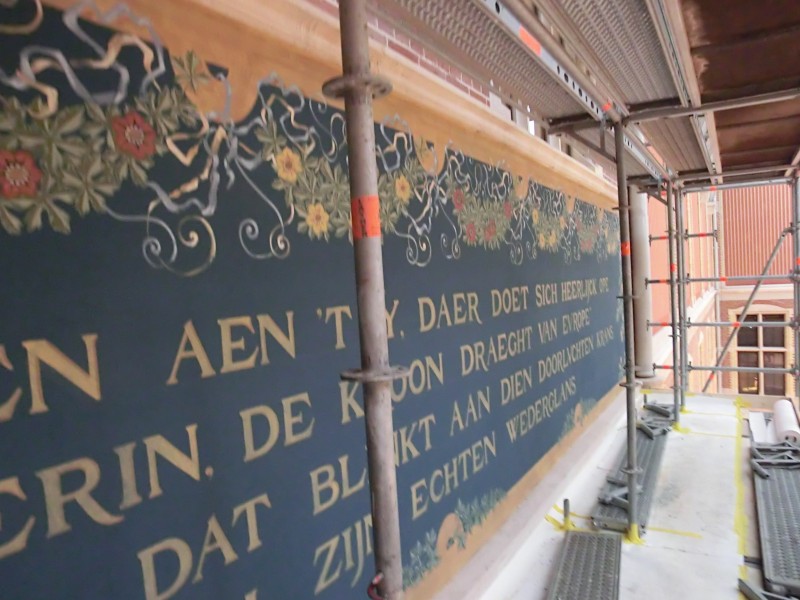 EN AEN 'T Y, DAER DOET SICH HEERLIJCK OPE
ERIN. DE KROON DRAEGHT VAN EVROPE
DAT BLINKT AAN DIEN DOORLVCHTEN KRANS
ZIJN ECHTEN WEDERGLANS